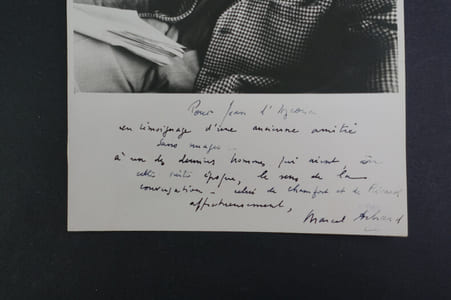 Pour Jean l'
en témoignage d'une ancienne amitié
sans nuages -
à un des derniers hommes qui aient,
cette époque, le sens de la
conversation - celui de Chamfort et de Rivarol
affectueusement,
Marcel Achard